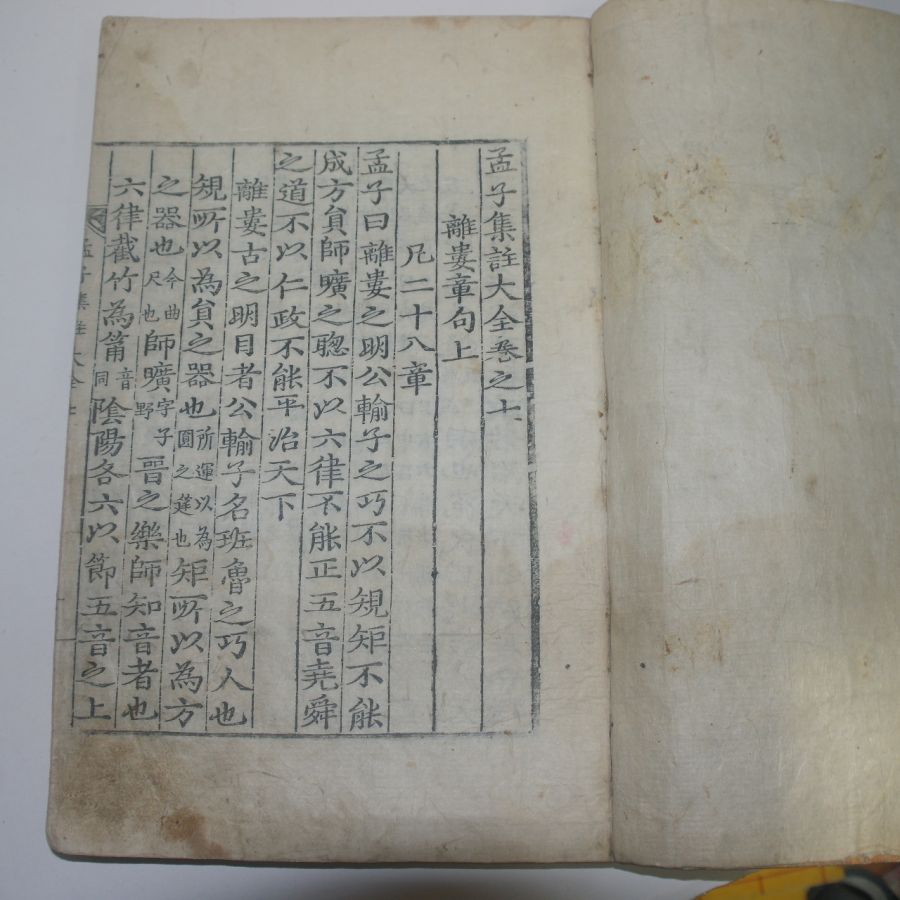 孟子集註大全卷之七
離婁章句上
凡二十八章
孟子曰離婁之明公輸子之巧不以規矩不能
成方員師曠之聰不以六律不能正五音堯舜
之道不以仁政不能平治天下
離婁古之明目者公輸子名班魯之巧人也
規所以為員之器也所運以為圓之筳也矩所以為方
之器也今曲尺也師曠字子野晉之樂師知音者也
六律截竹為筩音同陰陽各六以節五音之上
孟子集註大全